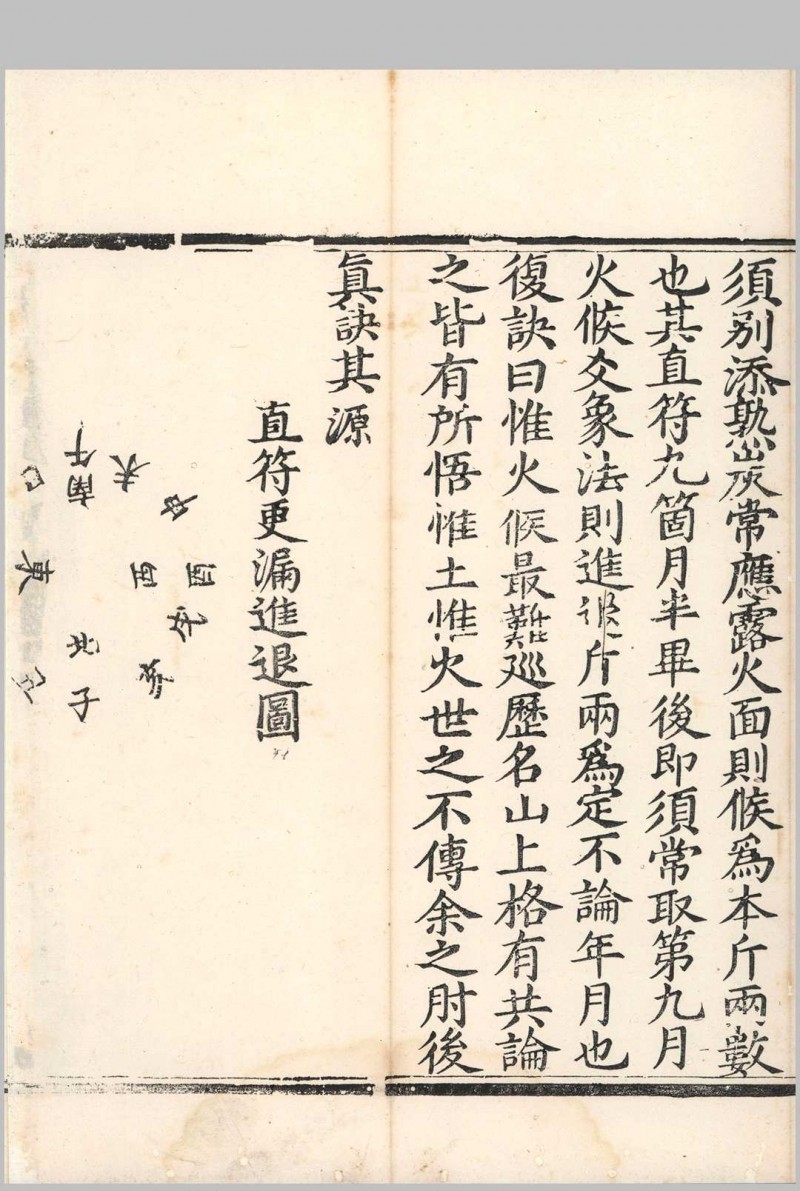 須别添熟炭常應露火面則候爲本斤兩數
也其直符九箇月半畢後即須常取第九月
火候爻象法則進退斤兩爲定不論年月也
復訣曰惟火候最難巡歷名山上格有共論
之皆有所悟惟土惟火世之不傳余之肘後
眞訣其源
直符更漏進退圖
午
南
東
西
北
子